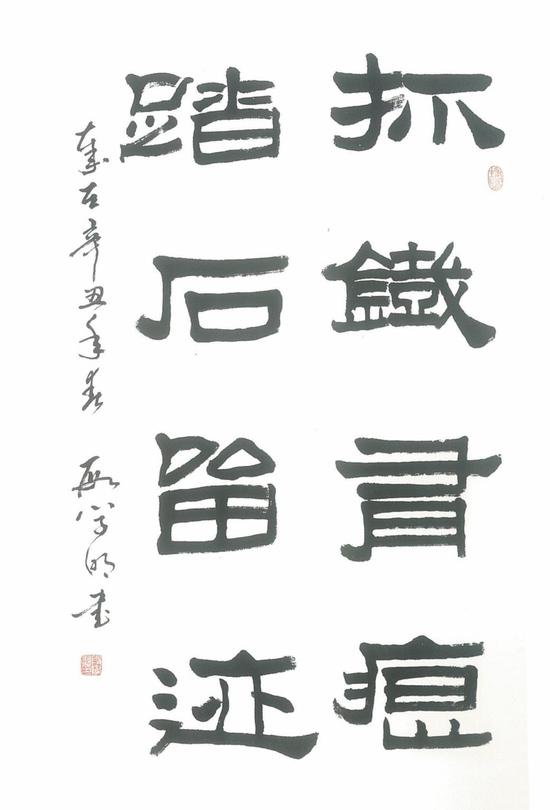 抓鐵有痕
踏石留迹
歲在辛丑年春 學明書